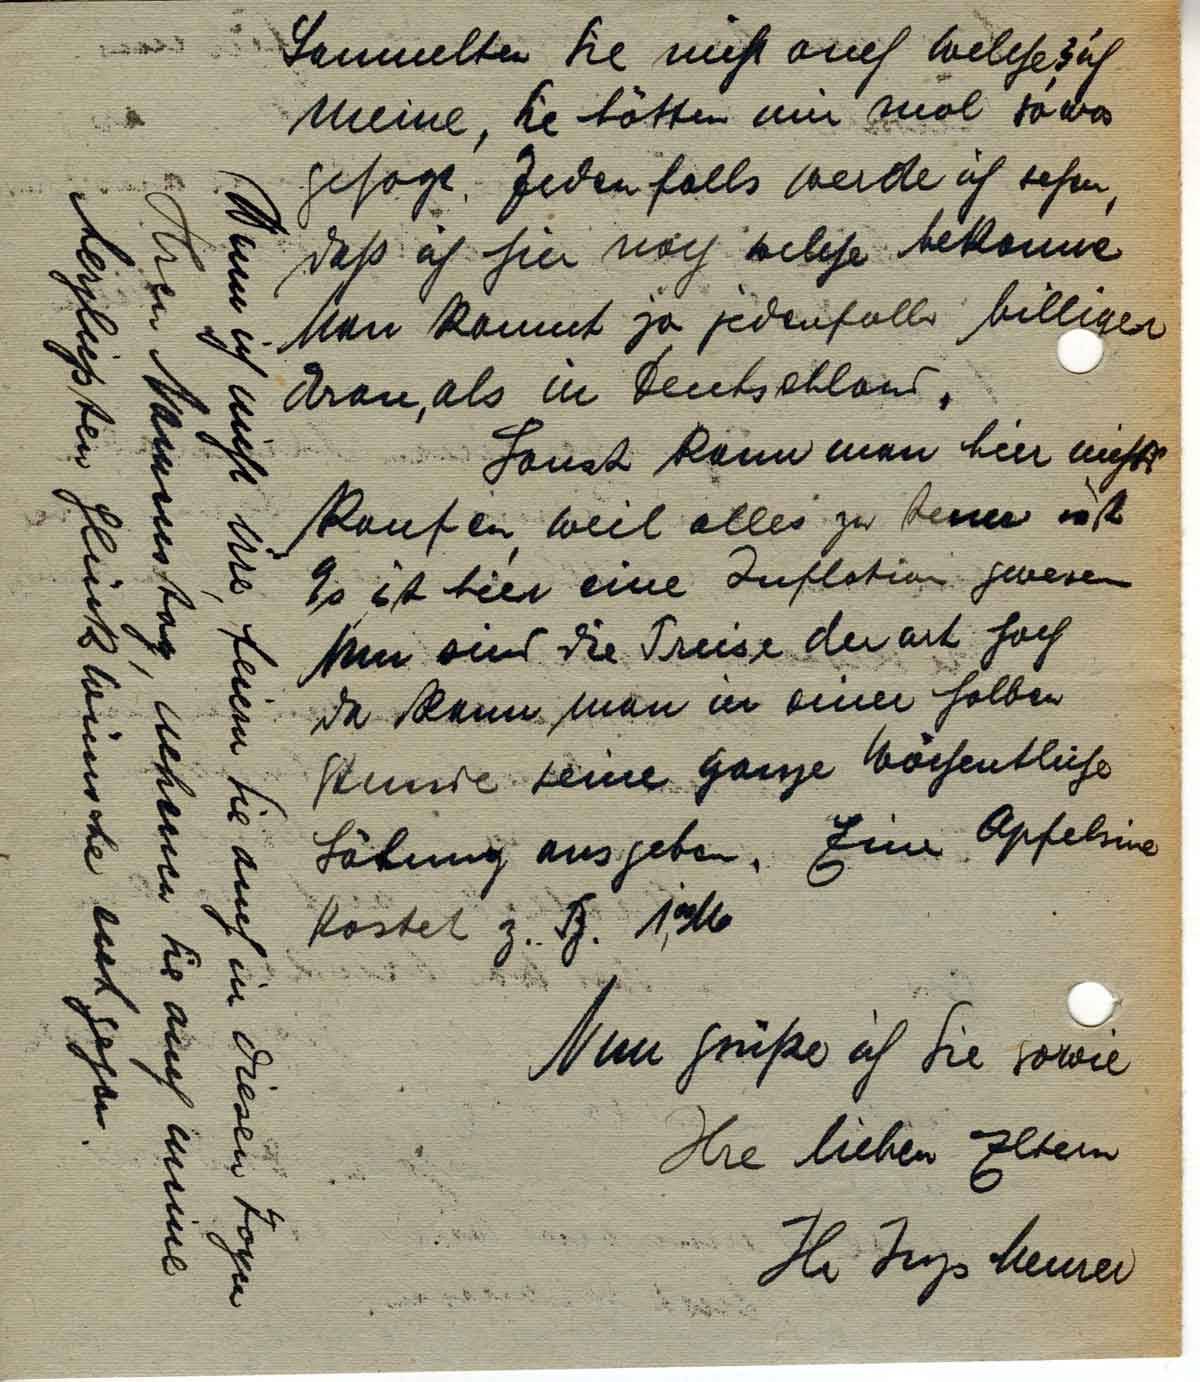 Sammelten Sie nicht auch welche? ich
meine, Sie hätten mir mal sowas
gesagt. Jedenfalls werde ich sehen,
daß ich hier noch welche bekomme
Man kommt ja jedenfalls billiger
dran, als in Deutschland.
Sonst kann man hier nichts
kaufen, weil alles zu teuer ist
Es ist hier eine Inflation gewesen
Nun sind die Preise derart hoch
da kann man in einer halben
Stunde seine ganze wöchentliche
Löhnung ausgeben. Eine Apfelsine
kostet z. B. 1,00 M
Nun grüße ich Sie sowie
Ihre lieben Eltern
Ihr Meurer
Wenn ich nicht irre, feiern Sie auch in diesen Tagen
Ihren Namenstag, nehmen Sie auch meine
herzlichsten Glückwünsche entgegen.